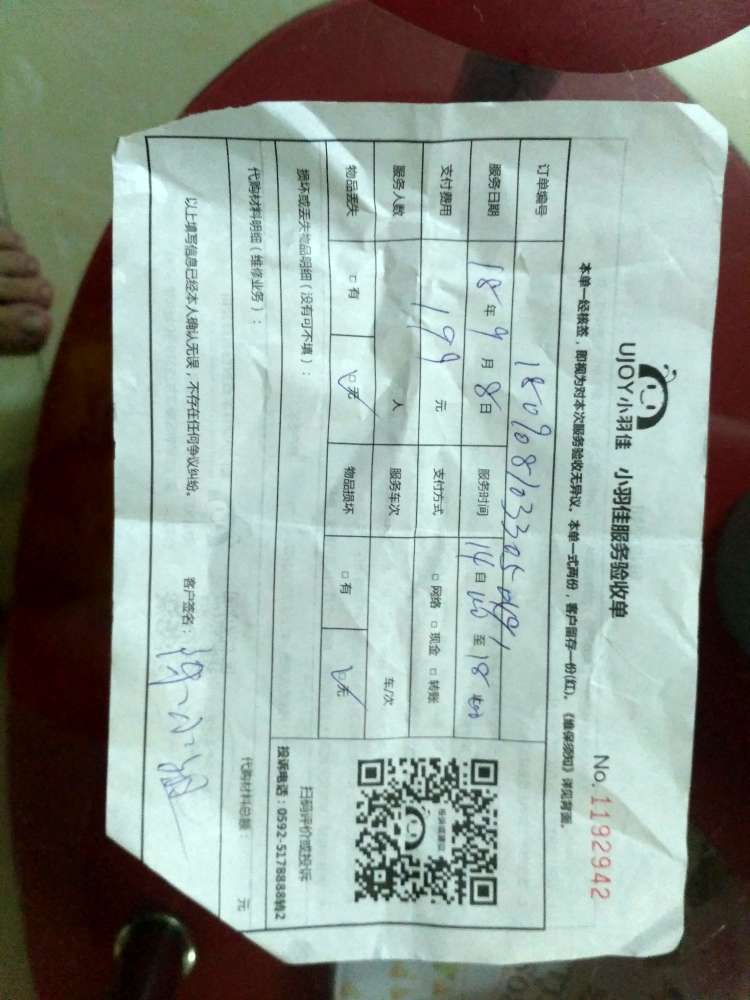 UJOY小羽佳 小羽佳服务验收单
No. 1192942
本单一经核签，即视为对本次服务验收无异议。本单一式两份，客户留存一份(红)。《维保须知》详见背面。
订单编号
服务日期 18年9月8日 服务时间 14自00至18
支付费用 199元 支付方式 □网络 □现金 □转账
服务人数 人 服务车次 车/次
物品丢失 □有 ☑无 物品损坏 □有 ☑无
损坏或丢失物品明细（没有可不填）：
扫码评价或投诉
投诉电话：0592-5178888转2
代购材料明细（维修业务）：
代购材料总额： 元
以上填写信息已经本人确认无误，不存在任何争议纠纷。
客户签名：